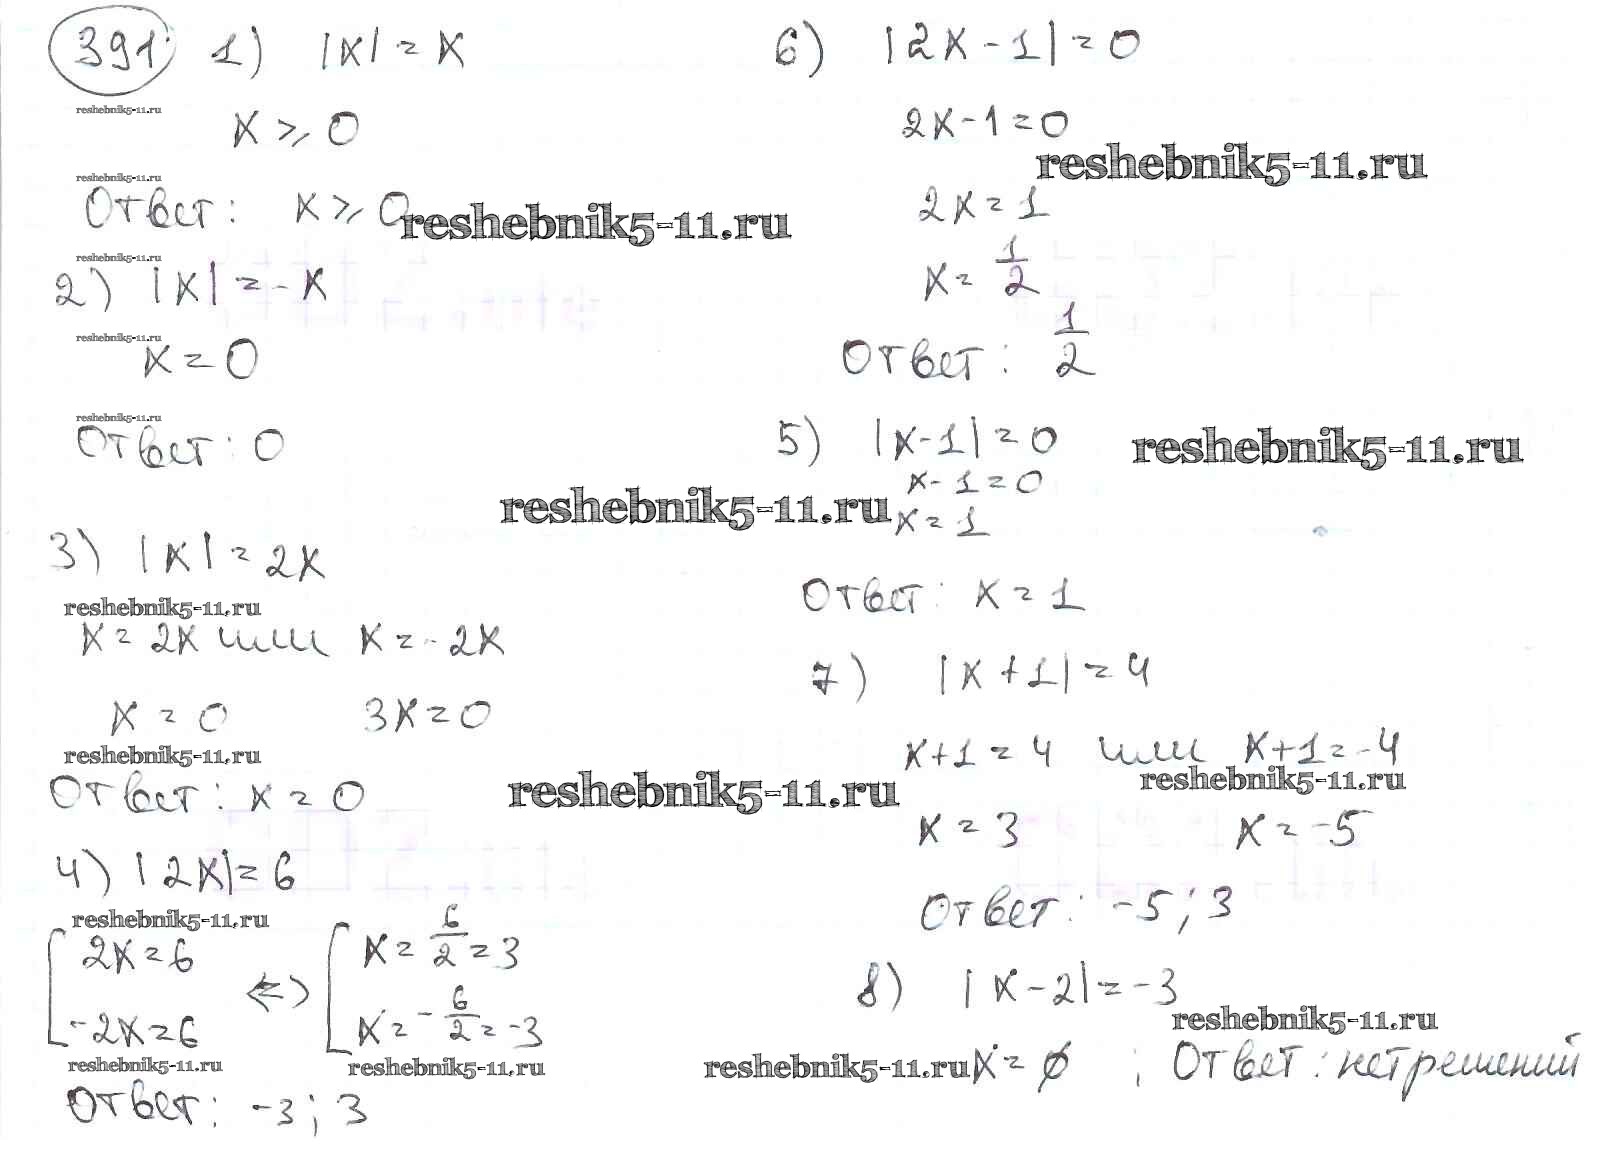 391. 1) |x| = x
reshebnik5-11.ru
x ⩾ 0
reshebnik5-11.ru
Ответ: x ⩾ 0
reshebnik5-11.ru
reshebnik5-11.ru
2) |x| = -x
reshebnik5-11.ru
x = 0
reshebnik5-11.ru
Ответ: 0
reshebnik5-11.ru
3) |x| = 2x
reshebnik5-11.ru
x = 2x или x = -2x
x = 0 3x = 0
reshebnik5-11.ru
Ответ: x = 0
reshebnik5-11.ru
4) |2x| = 6
reshebnik5-11.ru
[ 2x = 6 <=> [ x = 6/2 = 3
-2x = 6 x = -6/2 = -3
reshebnik5-11.ru reshebnik5-11.ru
Ответ: -3; 3
6) |2x - 1| = 0
2x - 1 = 0
reshebnik5-11.ru
2x = 1
x = 1/2
Ответ: 1/2
5) |x - 1| = 0
reshebnik5-11.ru
x - 1 = 0
x = 1
Ответ: x = 1
7) |x + 1| = 4
x + 1 = 4 или x + 1 = -4
reshebnik5-11.ru
x = 3 x = -5
Ответ: -5; 3
8) |x - 2| = -3
reshebnik5-11.ru
reshebnik5-11.ru
x = ∅ ; Ответ: нет решений